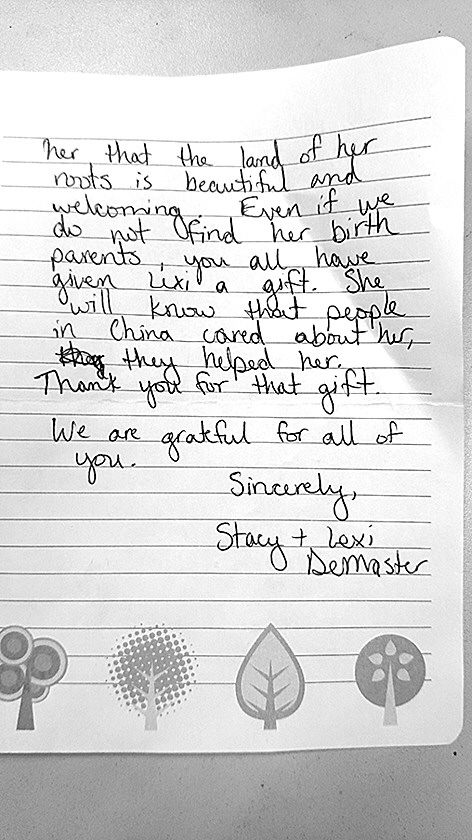 her that the land of her
roots is beautiful and
welcoming. Even if we
do not find her birth
parents, you all have
given Lexi a gift. She
will know that people
in China cared about her,
they helped her.
Thank you for that gift.
We are grateful for all of
you.
Sincerely,
Stacy + Lexi
DeMaster